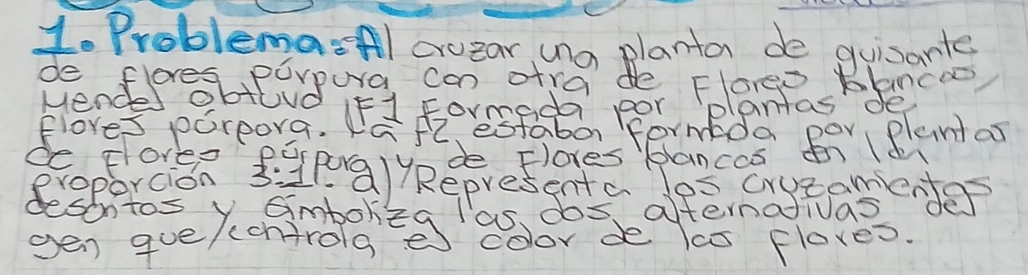 1. Problema: Al cruzar una planta de guisante
de flores púrpura con otra de Flores blancas,
Mendel obtuvo F1 Formada por plantas de
flores púrpora. La F2 estaba formada por plantas
de flores púrpura y de Flores blancas en la
proporción 3:1. a) Representa los cruzamientos
descritos y simboliza las dos alternativas del
gen que controla el color de las flores.